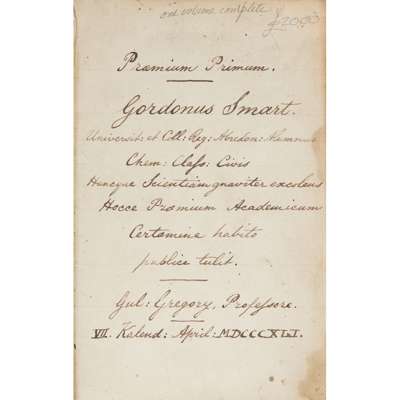 one volume complete
£200
Præmium Primum.
Gordonus Smart.
Universit: et Coll: Reg: Abredon: Alumnus
Chem: Class: Civis
Hancque Scientiam gnaviter excolens
Hocce Præmium Academicum
Certamine habito
publice tulit.
Gul: Gregory, Professore.
VII. Kalend: April: MDCCCXLI.